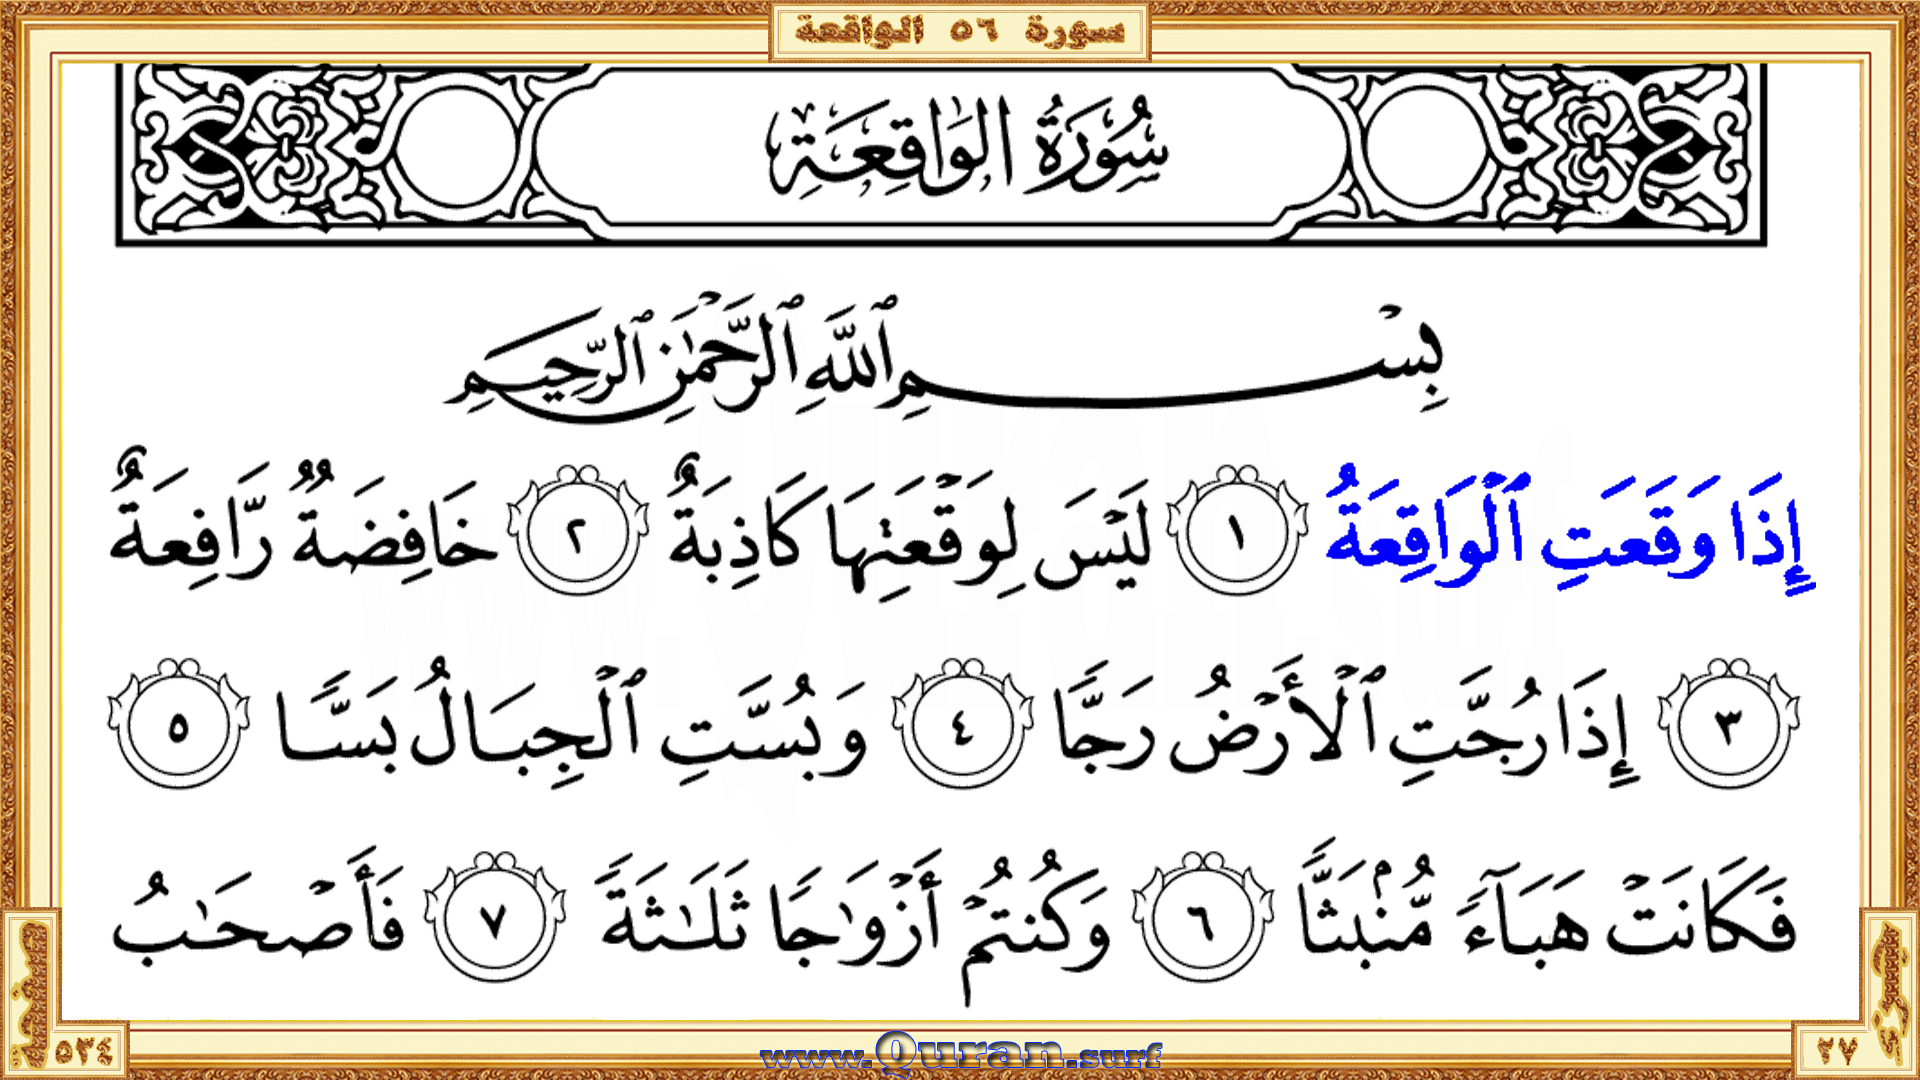 سورة ٥٦ الواقعة
سُورَةُ الوَاقِعَةِ
بِسْمِ ٱللَّهِ ٱلرَّحْمَٰنِ ٱلرَّحِيمِ
إِذَا وَقَعَتِ ٱلْوَاقِعَةُ ١ لَيْسَ لِوَقْعَتِهَا كَاذِبَةٌ ٢ خَافِضَةٌ رَّافِعَةٌ
٣ إِذَا رُجَّتِ ٱلْأَرْضُ رَجًّا ٤ وَبُسَّتِ ٱلْجِبَالُ بَسًّا ٥
فَكَانَتْ هَبَآءً مُّنۢبَثًّا ٦ وَكُنتُمْ أَزْوَٰجًا ثَلَٰثَةً ٧ فَأَصْحَٰبُ
جزء ٢٧
صفحة ٥٣٤
www.Quran.surf